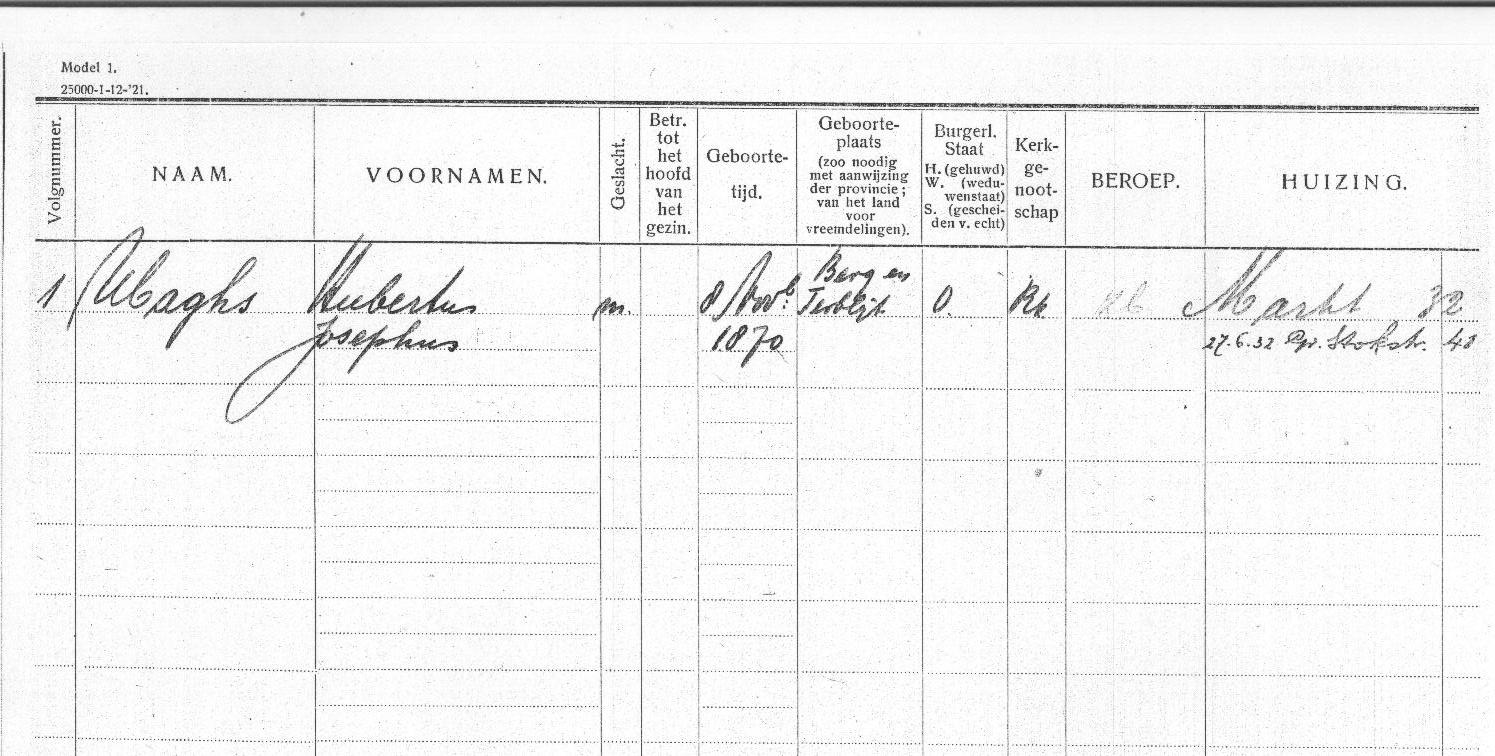 Model 1.
25000-1-12-'21.
Volgnummer.
NAAM.
VOORNAMEN.
Geslacht.
Betr.
tot
het
hoofd
van
het
gezin.
Geboorte-
tijd.
Geboorte-
plaats
(zoo noodig
met aanwijzing
der provincie;
van het land
voor
vreemdelingen).
Burgerl.
Staat
H. (gehuwd)
W. (wedu-
wenstaat)
S. (geschei-
den v. echt)
Kerk-
ge-
noot-
schap
BEROEP.
HUIZING.
1 Ubaghs Hubertus m. 8 Novb. Berg en O. Rk Markt 32
Josephus 1870 Terblijt 27.6.32 Gr. Stokstr. 40